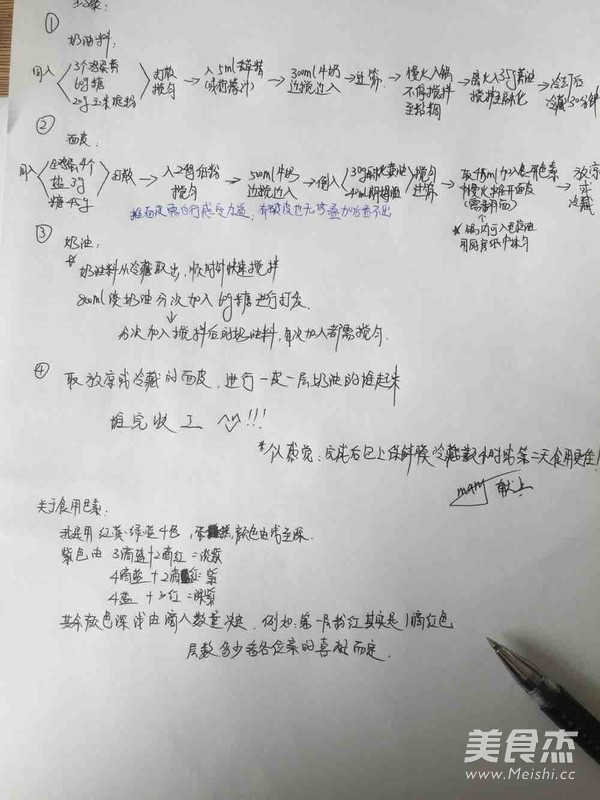 步骤:
①
奶油料:
用入 3个鸡蛋黄 60g糖 20g玉米淀粉 打散搅匀 → 入5ml → 300ml牛奶边搅边入 → 过筛 → 慢火入锅不停搅拌至粘稠 → 离火入35g黄油搅拌至融化 → 冷却后冷藏30分钟
②
面皮:
用入 全鸡蛋4个 盐3g 糖45g 打散 → 入 低粉搅匀 → 500ml牛奶边搅边入 → 倒入 搅匀过筛 → 取 加入食用色素 慢火摊开面皮 → 放凉或冷藏
摊面皮需自行感受力道,有破皮也无 叠加后看不出
③ 奶油:
* 奶油料从冷藏取出,快速搅拌
800ml淡奶油分次加入60g糖进行打发.
↓
分次加入搅拌后的奶油料,每次加入都需搅匀.
④ 取放凉或冷藏的面皮,进行一皮一层奶油的堆起来
堆完收工 !!!
*以感觉:完成后包上保鲜膜冷藏数小时或第二天食用更佳!
mary 献上
关于食用色素:
我是用红·黄·绿·蓝4色, 颜色由浅至深.
紫色由 3滴蓝+2滴红=淡紫
4滴蓝+2滴红=紫
4蓝+3红=深紫
其余颜色深浅由滴入数量决定.例如:第一层粉红其实是1滴红色
层数多少看各位亲的喜好而定.
美食杰
www.Meishi.cc